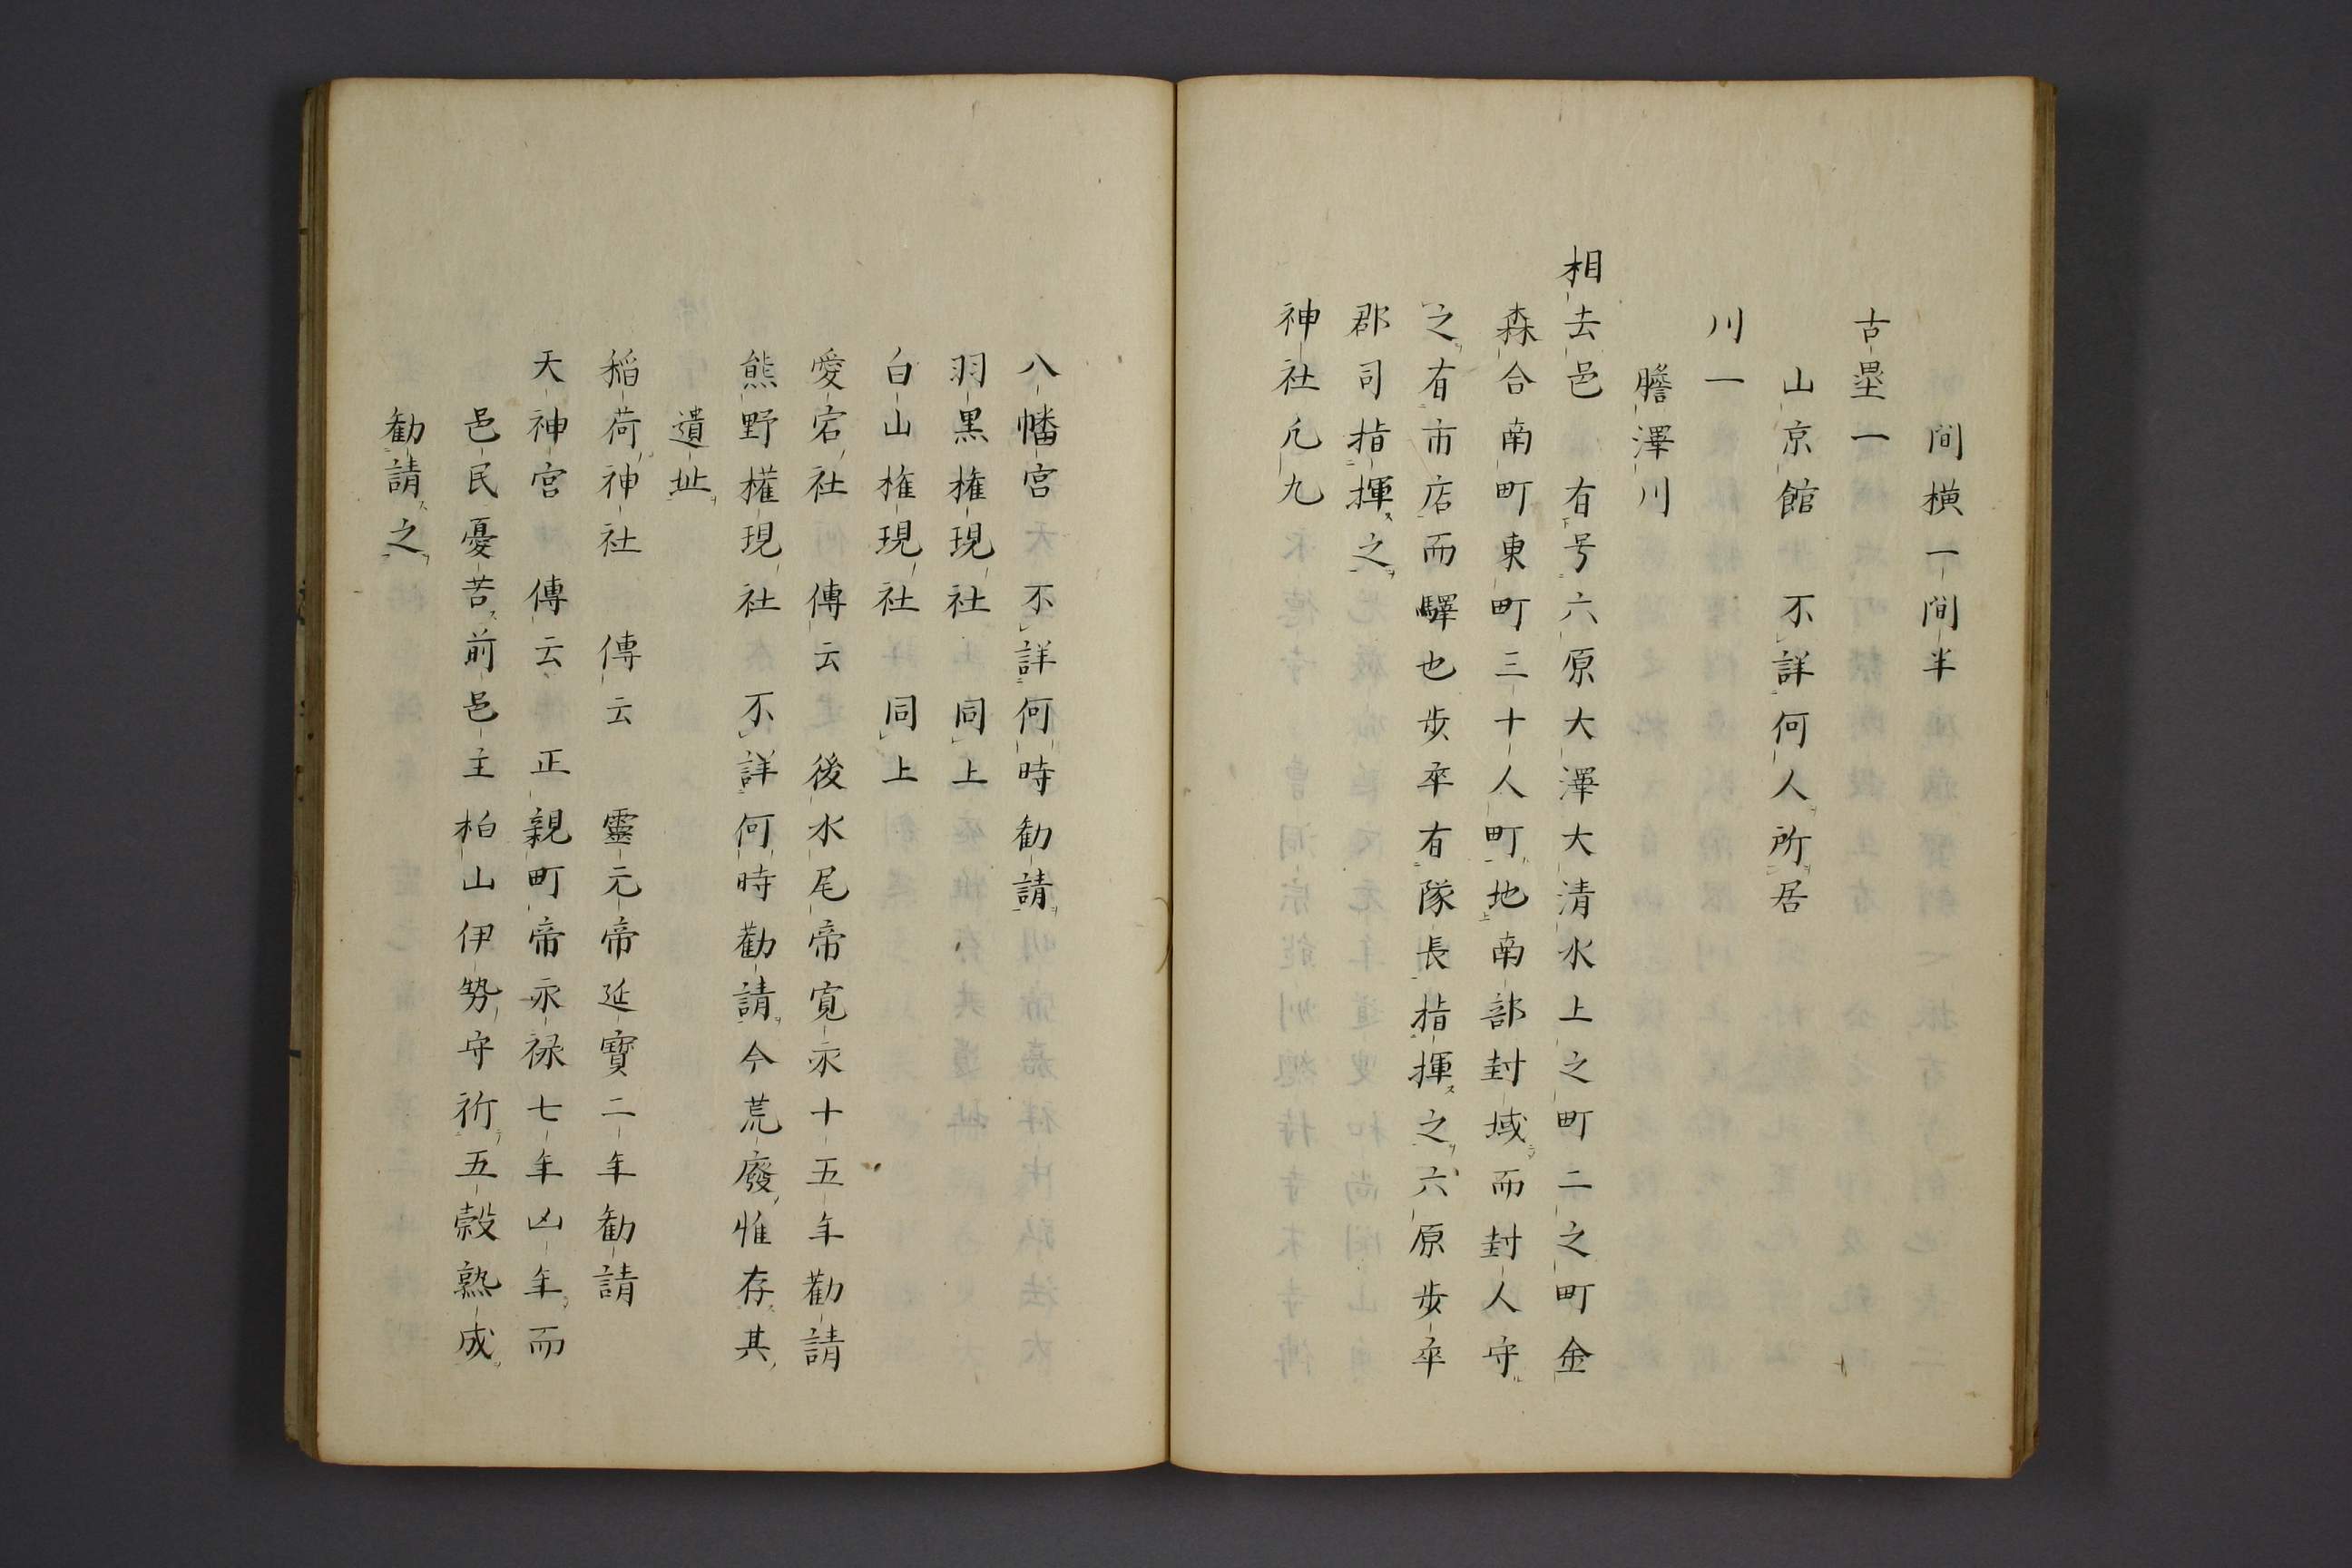 間横一間半
古塁一
山京館 不詳何人所居
川一
膽澤川
相去邑 有号六原大澤大清水上之町二之町金
森合南町東町三十人町地南部封域而封人守
之有市店而驛也歩卒有隊長指揮之六原歩卒
郡司指揮之
神社凡九
八幡宮 不詳何時勧請
羽黒権現社 同上
白山権現社 同上
愛宕社 傳云 後水尾帝寛永十五年勸請
熊野權現社 不詳何時勸請今荒廢惟存其
遺址
稲荷神社 傳云 靈元帝延寶二年勧請
天神宮 傳云 正親町帝永禄七年凶年而
邑民憂苦前邑主柏山伊勢守祈五穀熟成
勧請之